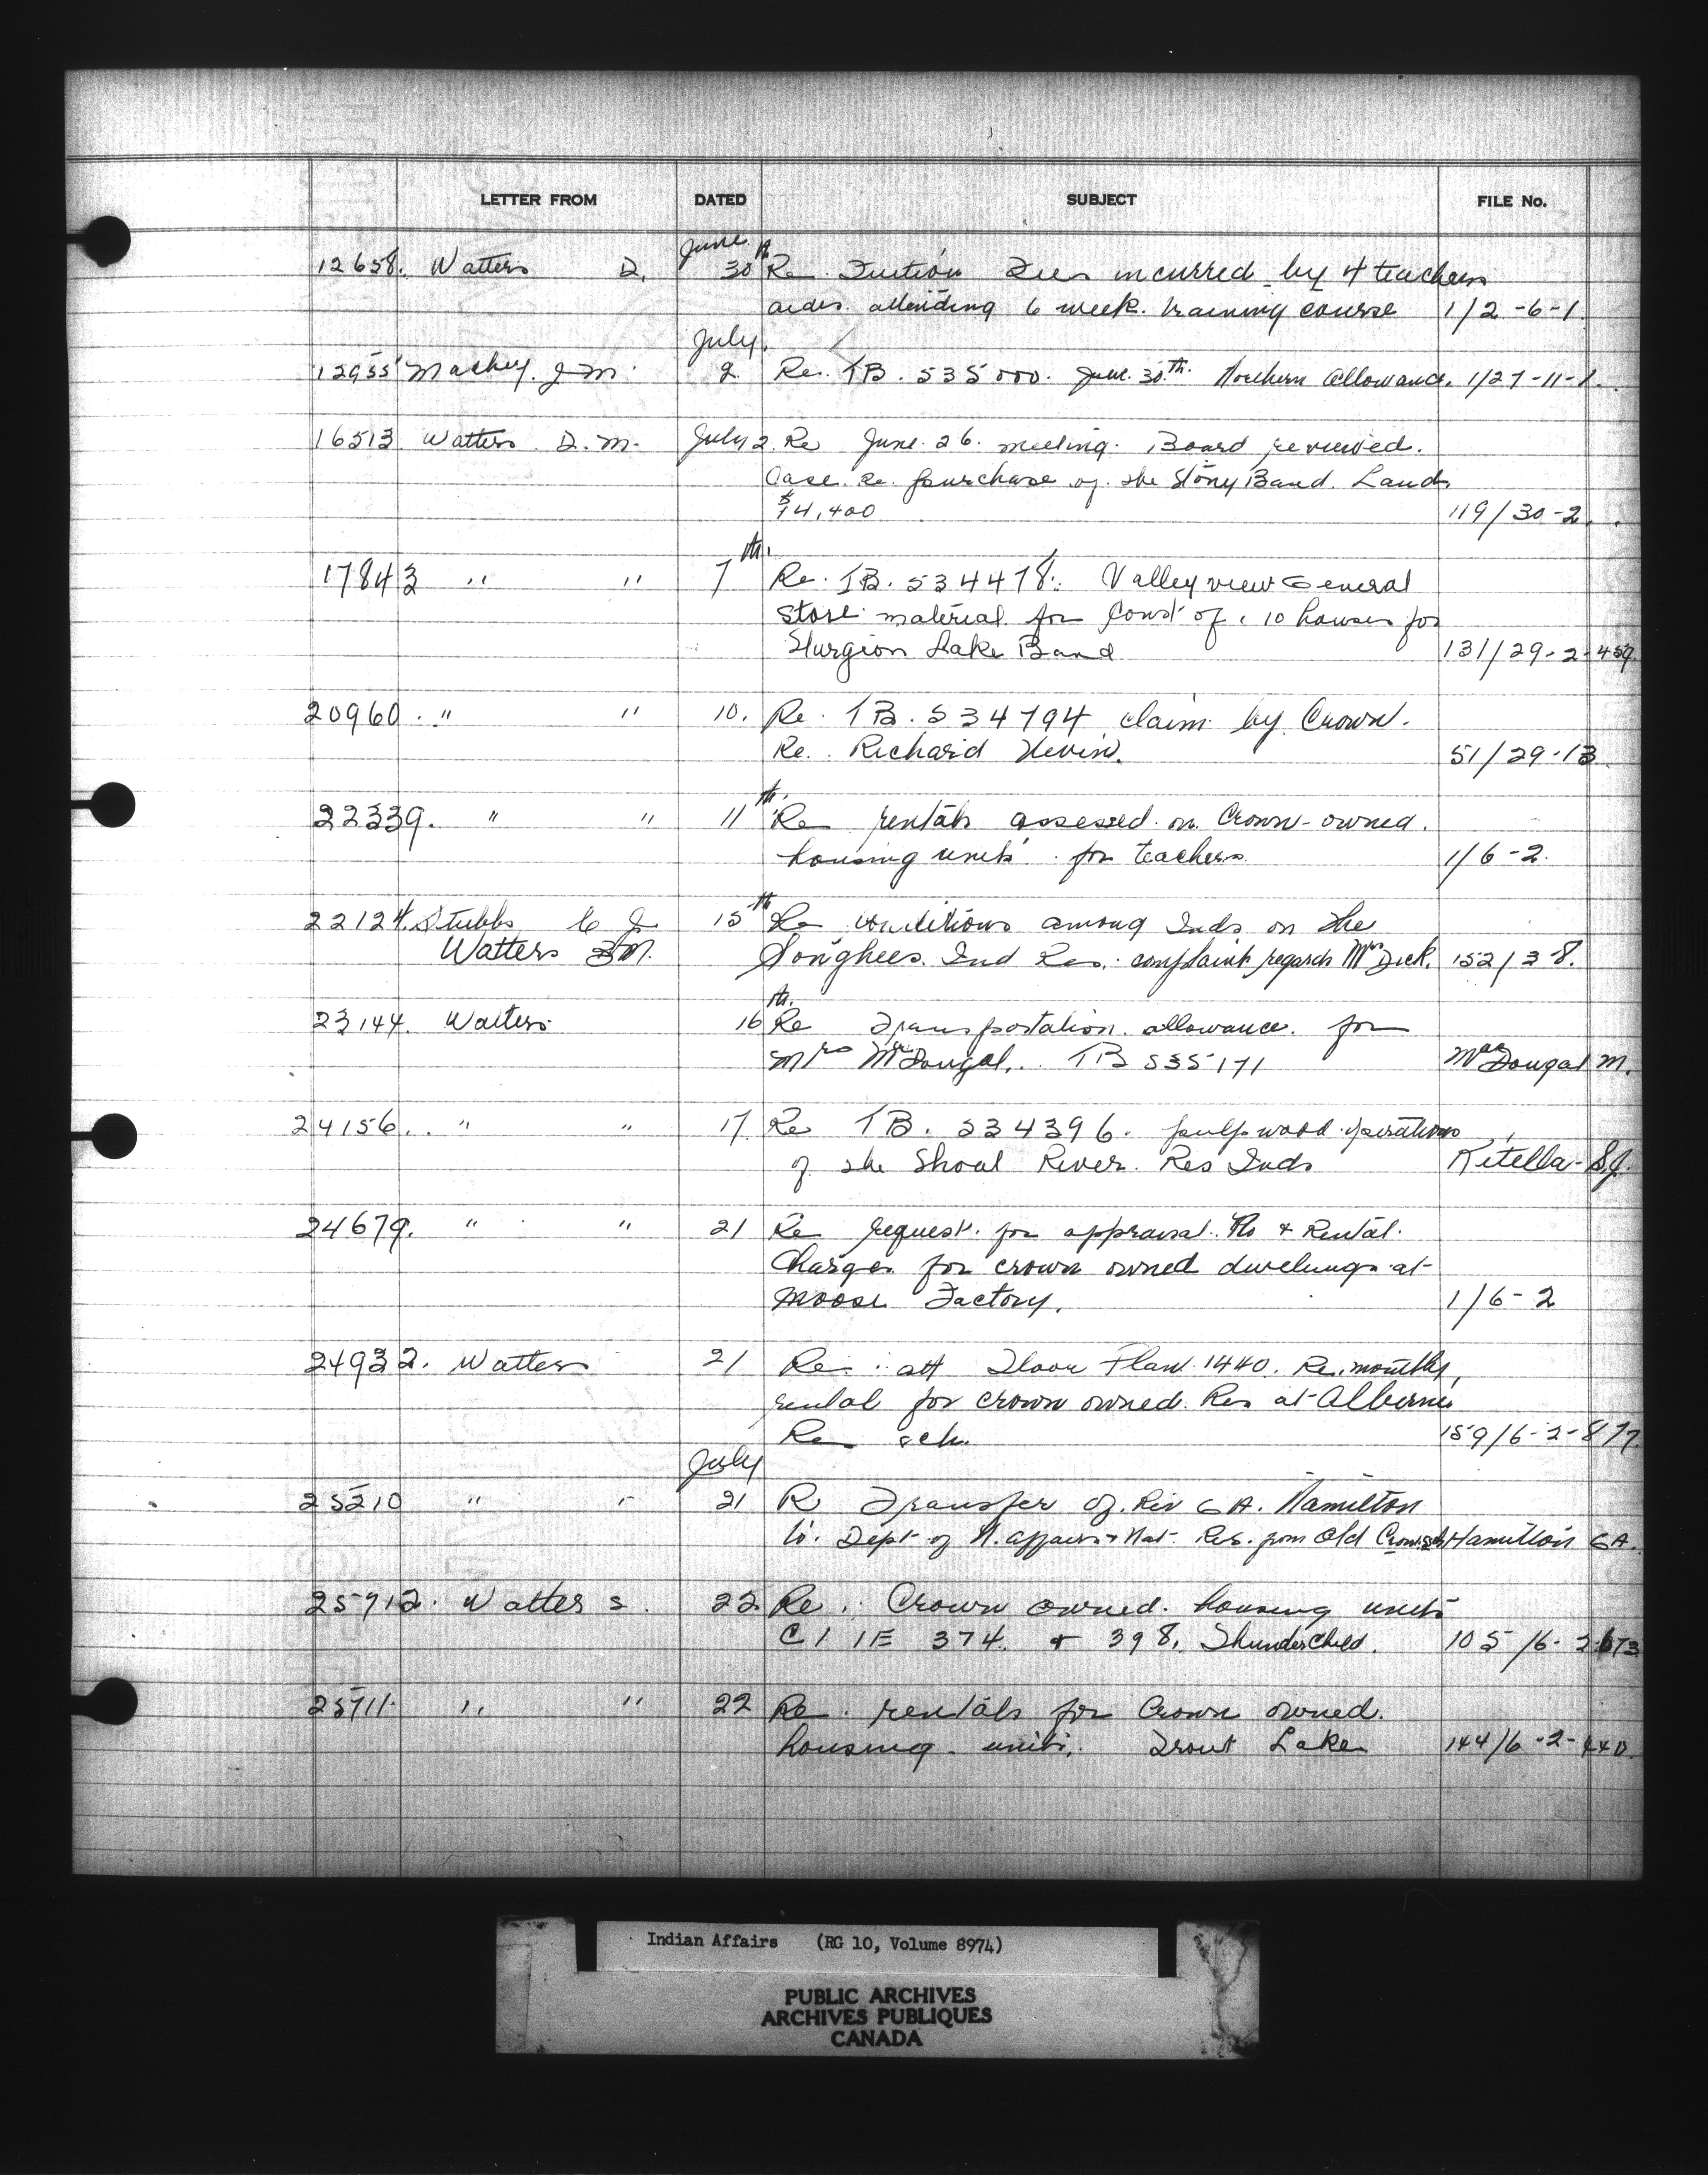 LETTER FROM DATED SUBJECT FILE No.
June
12658. Watters D. 30th Re Tuition Fees incurred by 4 teachers
aides attending 6 week training course 1/2-6-1
July
12955 Mackey J M 2 Re. TB. 535000. June 30th Northern Allowance. 1/27-11-1.
16513 Watters D. M. July 2. Re June 26. meeting. Board reviewed.
Case Re purchase of the Stony Band Land.
$14,400 119/30-2.
17843 " " 7th. Re. TB. 534478. Valleyview General
Store material for Const of 10 houses for
Sturgion Lake Band 131/29-2-459
20960. " " 10. Re. TB. 534794 claim by Crown.
Re. Richard Nevin. 51/29-13
22339. " " 11th. Re rentals assessed on Crown-owned.
housing units for teachers 1/6-2.
22124. Stubbs C J 15th Re conditions among Inds on the
Watters DM. Songhees Ind Res. complaint regards Mrs Dick. 152/3-8.
23144. Watters 16th. Re Transportation allowance for
Mrs McDougal. TB 535171 MacDougal M.
24156. " " 17 Re TB. 534396. pulpwood operations
of the Shoal River Res Inds Kitella- S.J.
24679. " " 21 Re request for appraisal & Rental
Charges for crown owned dwelungs at
Moose Factory. 1/6-2
24932. Watters 21 Re. att Floor Plan 1440. Re. monthly
rental for crown owned Res at Alberni
Re sch. 159/6-2-877
July
25210 " " 21 R Transfer of Rev G A. Hamilton
to. Dept of N. Affairs + Nat. Res. from Old Crow sch Hamilton G A.
25712. Watters. 22 Re. Crown owned housing units
C1 1E 374 + 398, Thunderchild. 105/6-2-673
25711. " " 22 Re. rentals for Crown owned.
housing units. Trout Lake 144/6-2-440.
Indian Affairs (RG 10, Volume 8974)
PUBLIC ARCHIVES
ARCHIVES PUBLIQUES
CANADA